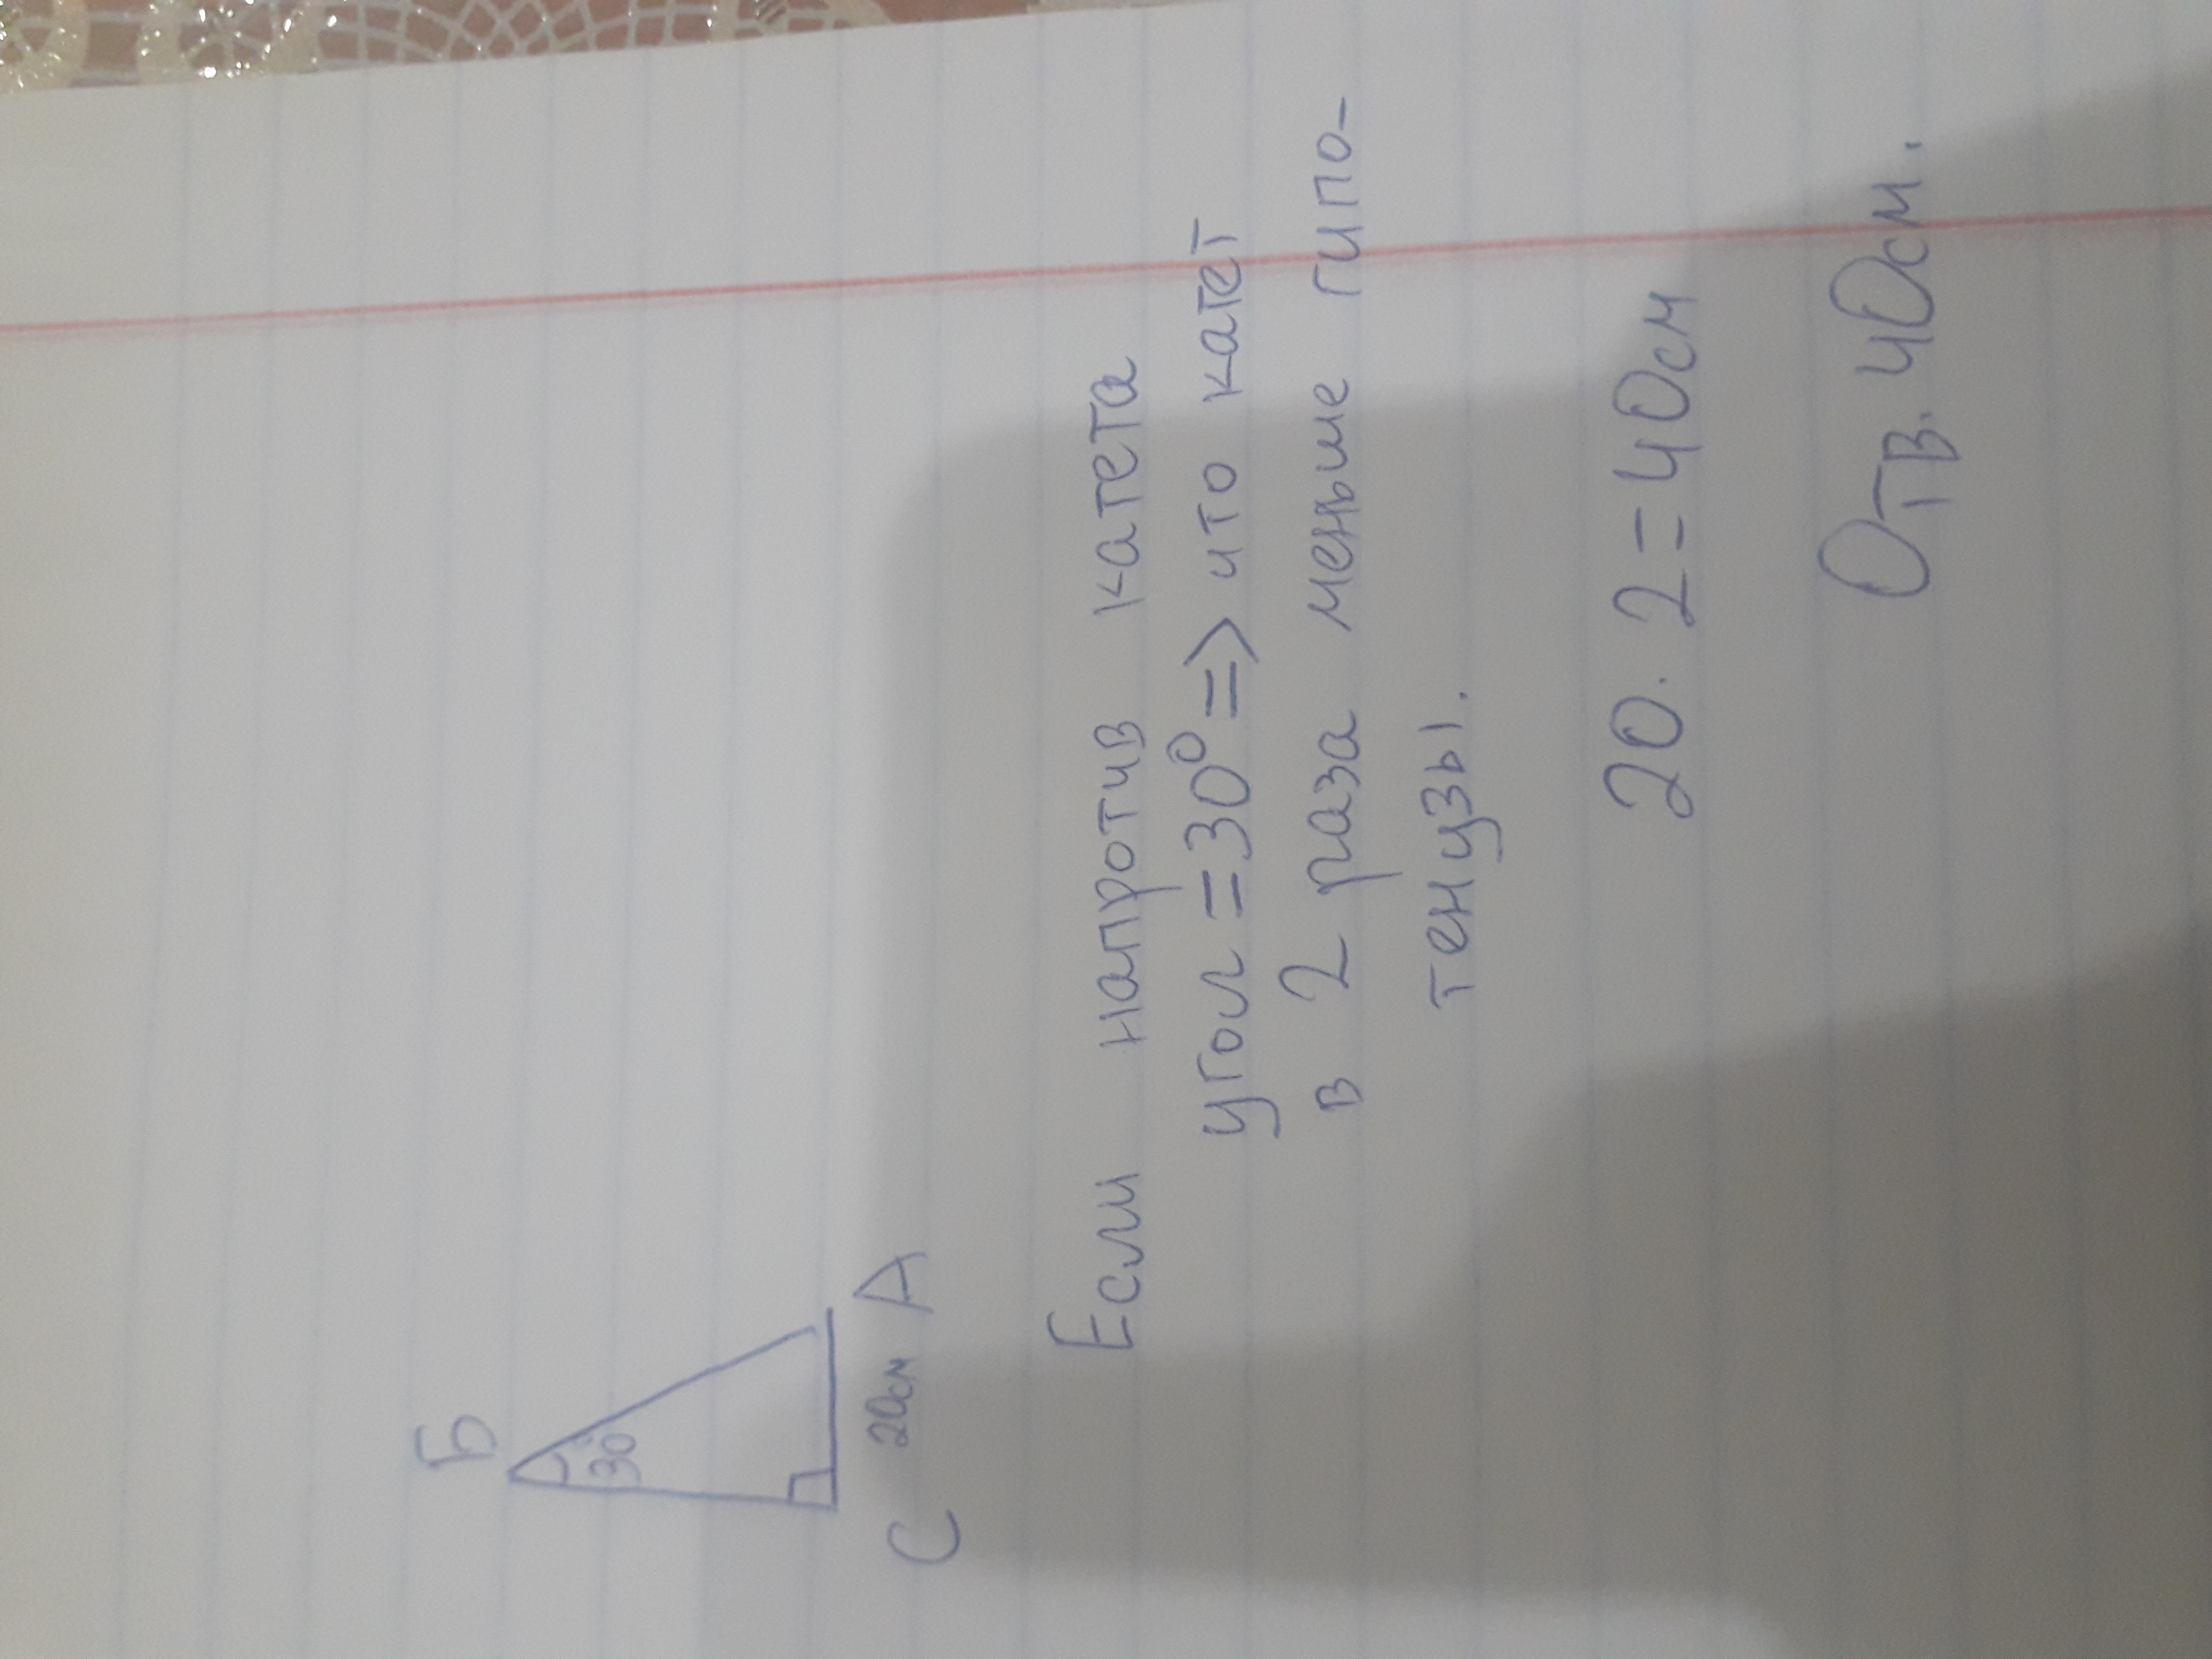 Б
30°
С 20см А
Если напротив катета
угол =30°=> что катет
в 2 раза меньше гипо-
тенузы.
20. 2=40см
Отв. 40см.